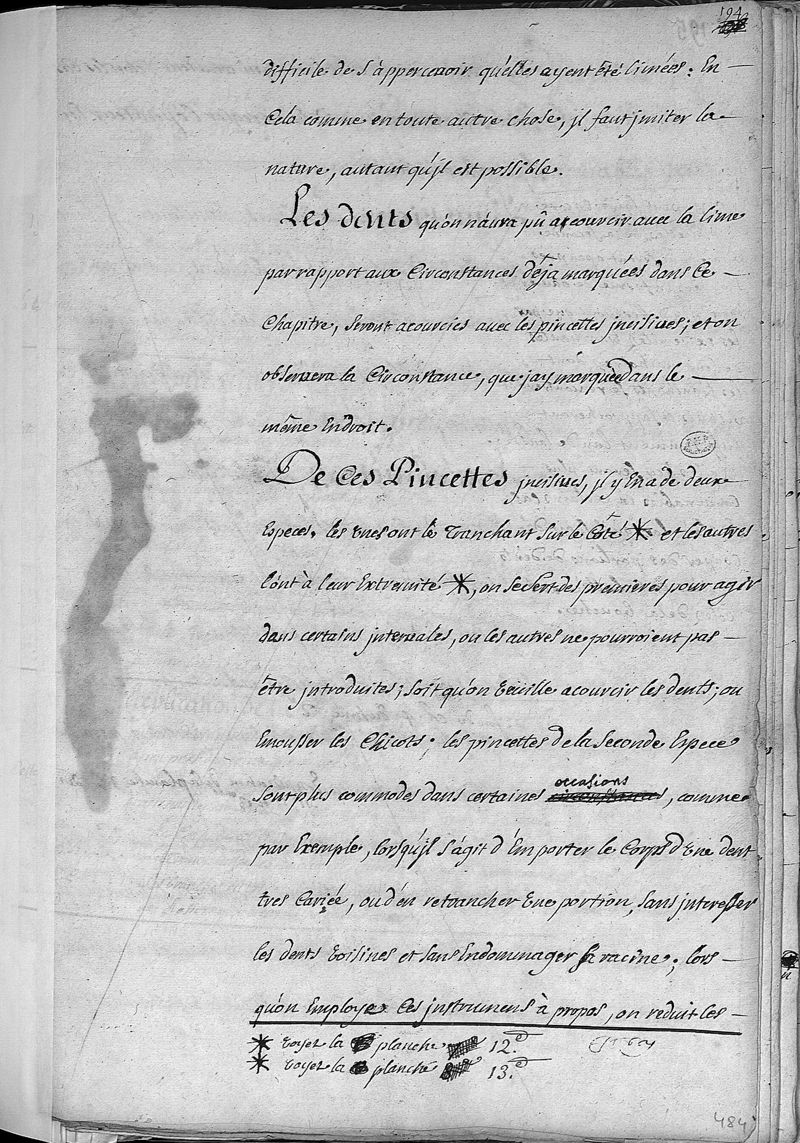 194
difficile de s'appercevoir qu'elles ayent été limées: En
Cela comme en toute autre chose, il faut jmiter la
nature, autant qu'jl est possible.
Les dents qu'on n'aura pû acourcir avec la lime
par rapport aux Circonstances déja marquées dans Ce
Chapitre, seront acourcies avec les pincettes jncisives; et on
observera la Circonstance, que j'ay marquée dans le
même Endroit.
De Ces Pincettes jncisives, jl y En a de deux
Especes. les Unes ont le Tranchant sur le Coté * et les autres
l'ont à leur Extremité *, on se sert des premieres pour agir
dans certains jntervales, ou les autres ne pourroient pas
être jntroduites; soit qu'on veüille acourcir les dents, ou
Emousser les Chicots; les pincettes de la Seconde Espece
sont plus commodes dans certaines occasions, comme
par Exemple, lorsqu'jl s'agit d'Emporter le Corps d'Une dent
tres Cariée, ou d'en retrancher Une portion, sans jnteresser
les dents voisines et sans Endommager sa racine; lors
qu'on Employe Ces jnstrumens à propos, on reduit les
* voyez la planche 12.e
* voyez la planche 13.e
484